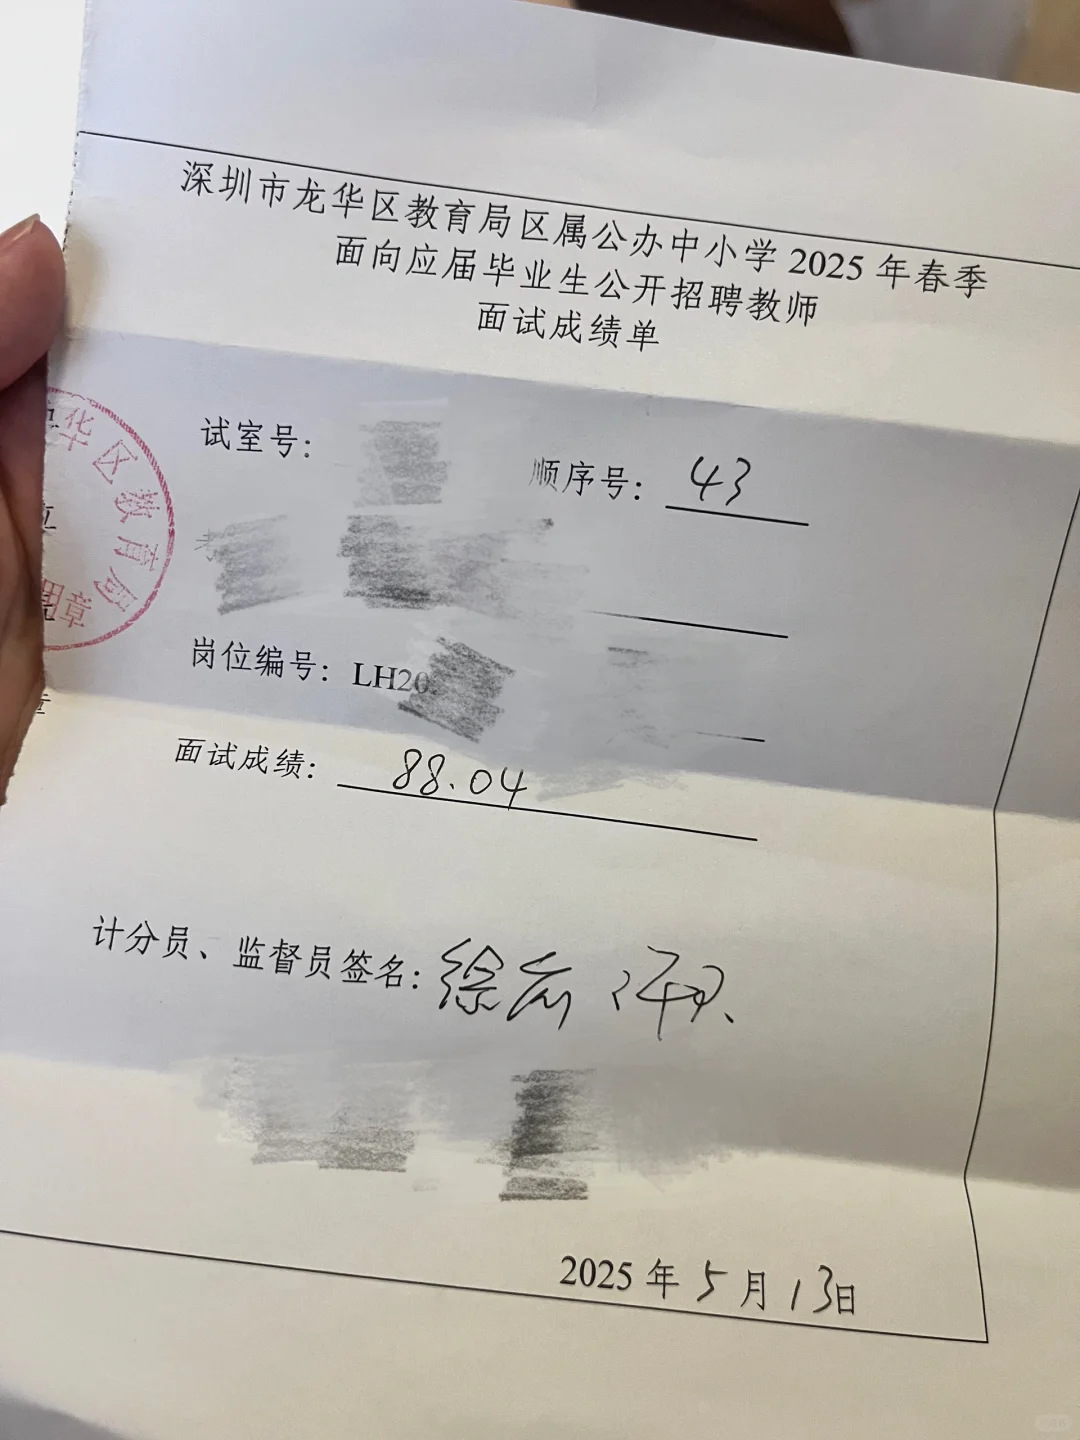 深圳市龙华区教育局区属公办中小学2025年春季
面向应届毕业生公开招聘教师
面试成绩单
试室号：
顺序号：43
考
华区教育局
用章
岗位编号：LH20
面试成绩：88.04
计分员、监督员签名：
2025年5月13日